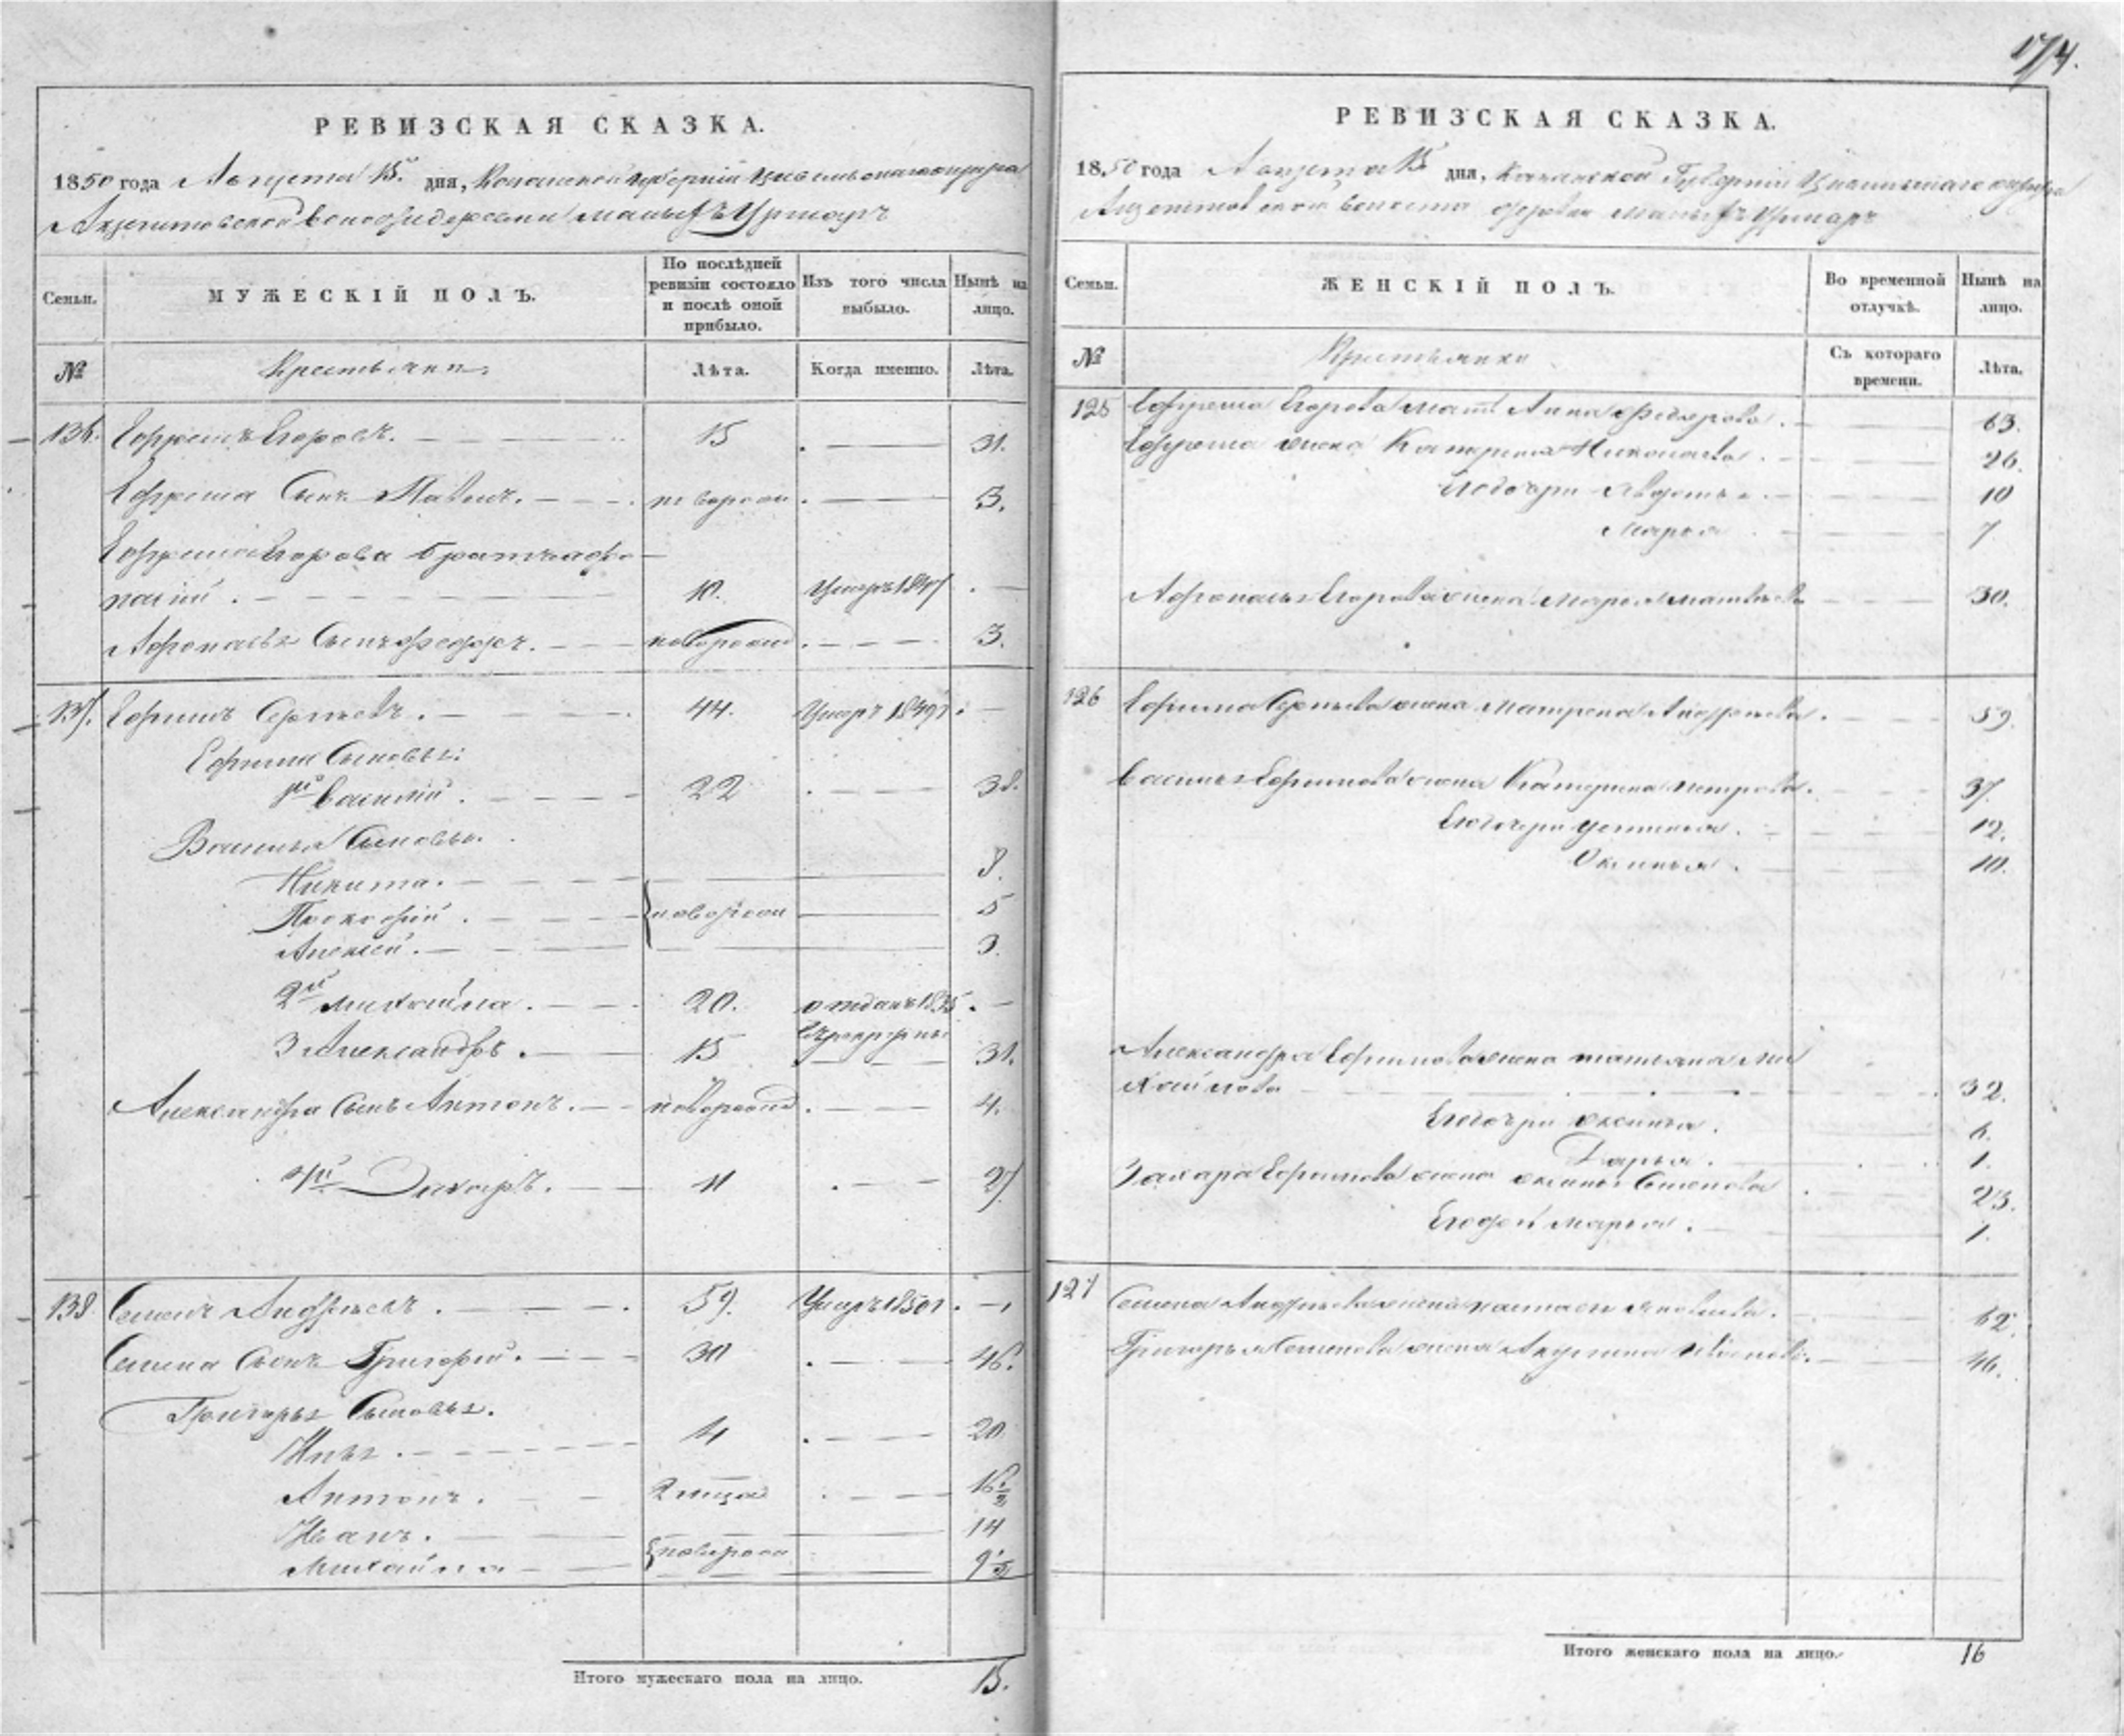 174.
РЕВИЗСКАЯ СКАЗКА.
1850 года Августа 15. дня, Казанской губернии Цивильскаго округа
волости деревни Малыхъ Урмаръ
Семьи. МУЖЕСКІЙ ПОЛЪ. По послѣдней ревизіи состояло и послѣ оной прибыло. Изъ того числа выбыло. Нынѣ на лицо.
№ Крестьяне Лѣта. Когда именно. Лѣта.
136. Ефремъ Егоровъ. 15 31.
Ефрема Сынъ Павелъ. новорож 3.
Ефрема Егорова братъ Афо-
насій. 10. Умеръ 1847
Афонасья Сынъ Федоръ. новорожд 3.
137. Ефимъ Сергѣевъ. 44. Умеръ 1849
Ефима Сыновья:
1й Василій. 22 38.
Василья Сыновья.
Никита. 8.
Прокофій. новорож 5
Алексѣй. 3.
2й Михайла. 20. отданъ 1835
въ рекруты
3 Александръ. 15 31.
Александра Сынъ Антонъ. новорожд 4.
4й Захаръ. 11 27
138. Семенъ Андреевъ. 59. Умеръ 1850
Семена Сынъ Григорій. 30 46.
Григорья Сыновья.
4 20
Антонъ. 2 мѣсца 16½
Иванъ. новорож 14
Михайла 9½
Итого мужескаго пола на лицо. 15.
РЕВИЗСКАЯ СКАЗКА.
1850 года Августа 15 дня, Казанской Губерніи Цивильскаго округа
волости деревни Малыхъ Урмаръ
Семьи. ЖЕНСКІЙ ПОЛЪ. Во временной отлучкѣ. Нынѣ на лицо.
№ Крестьянки Съ котораго времени. Лѣта.
125 Ефрема Егорова мать Анна Федорова. 63.
Ефрема жена Катерина Николаева. 26.
Его дочери 10
Марья 7
Афонасья Егорова жена Марья Матвѣева 30.
126 Ефима Сергѣева жена Матрена Андреева. 59.
Василья Ефимова жена Катерина Петрова. 37
Его дочери Устинья. 12.
Оксинья. 10.
Александра Ефимова жена Татьяна Ми
хайлова 32.
Его дочери Оксинья. 6.
Дарья. 1.
Захара Ефимова жена Оксинья Семенова 23.
Его дочь Марья. 1.
127 Семена Андреева жена Настасья Яковлева. 62.
Григорья Семенова жена Акулина Иванова. 46.
Итого женскаго пола на лицо. 16